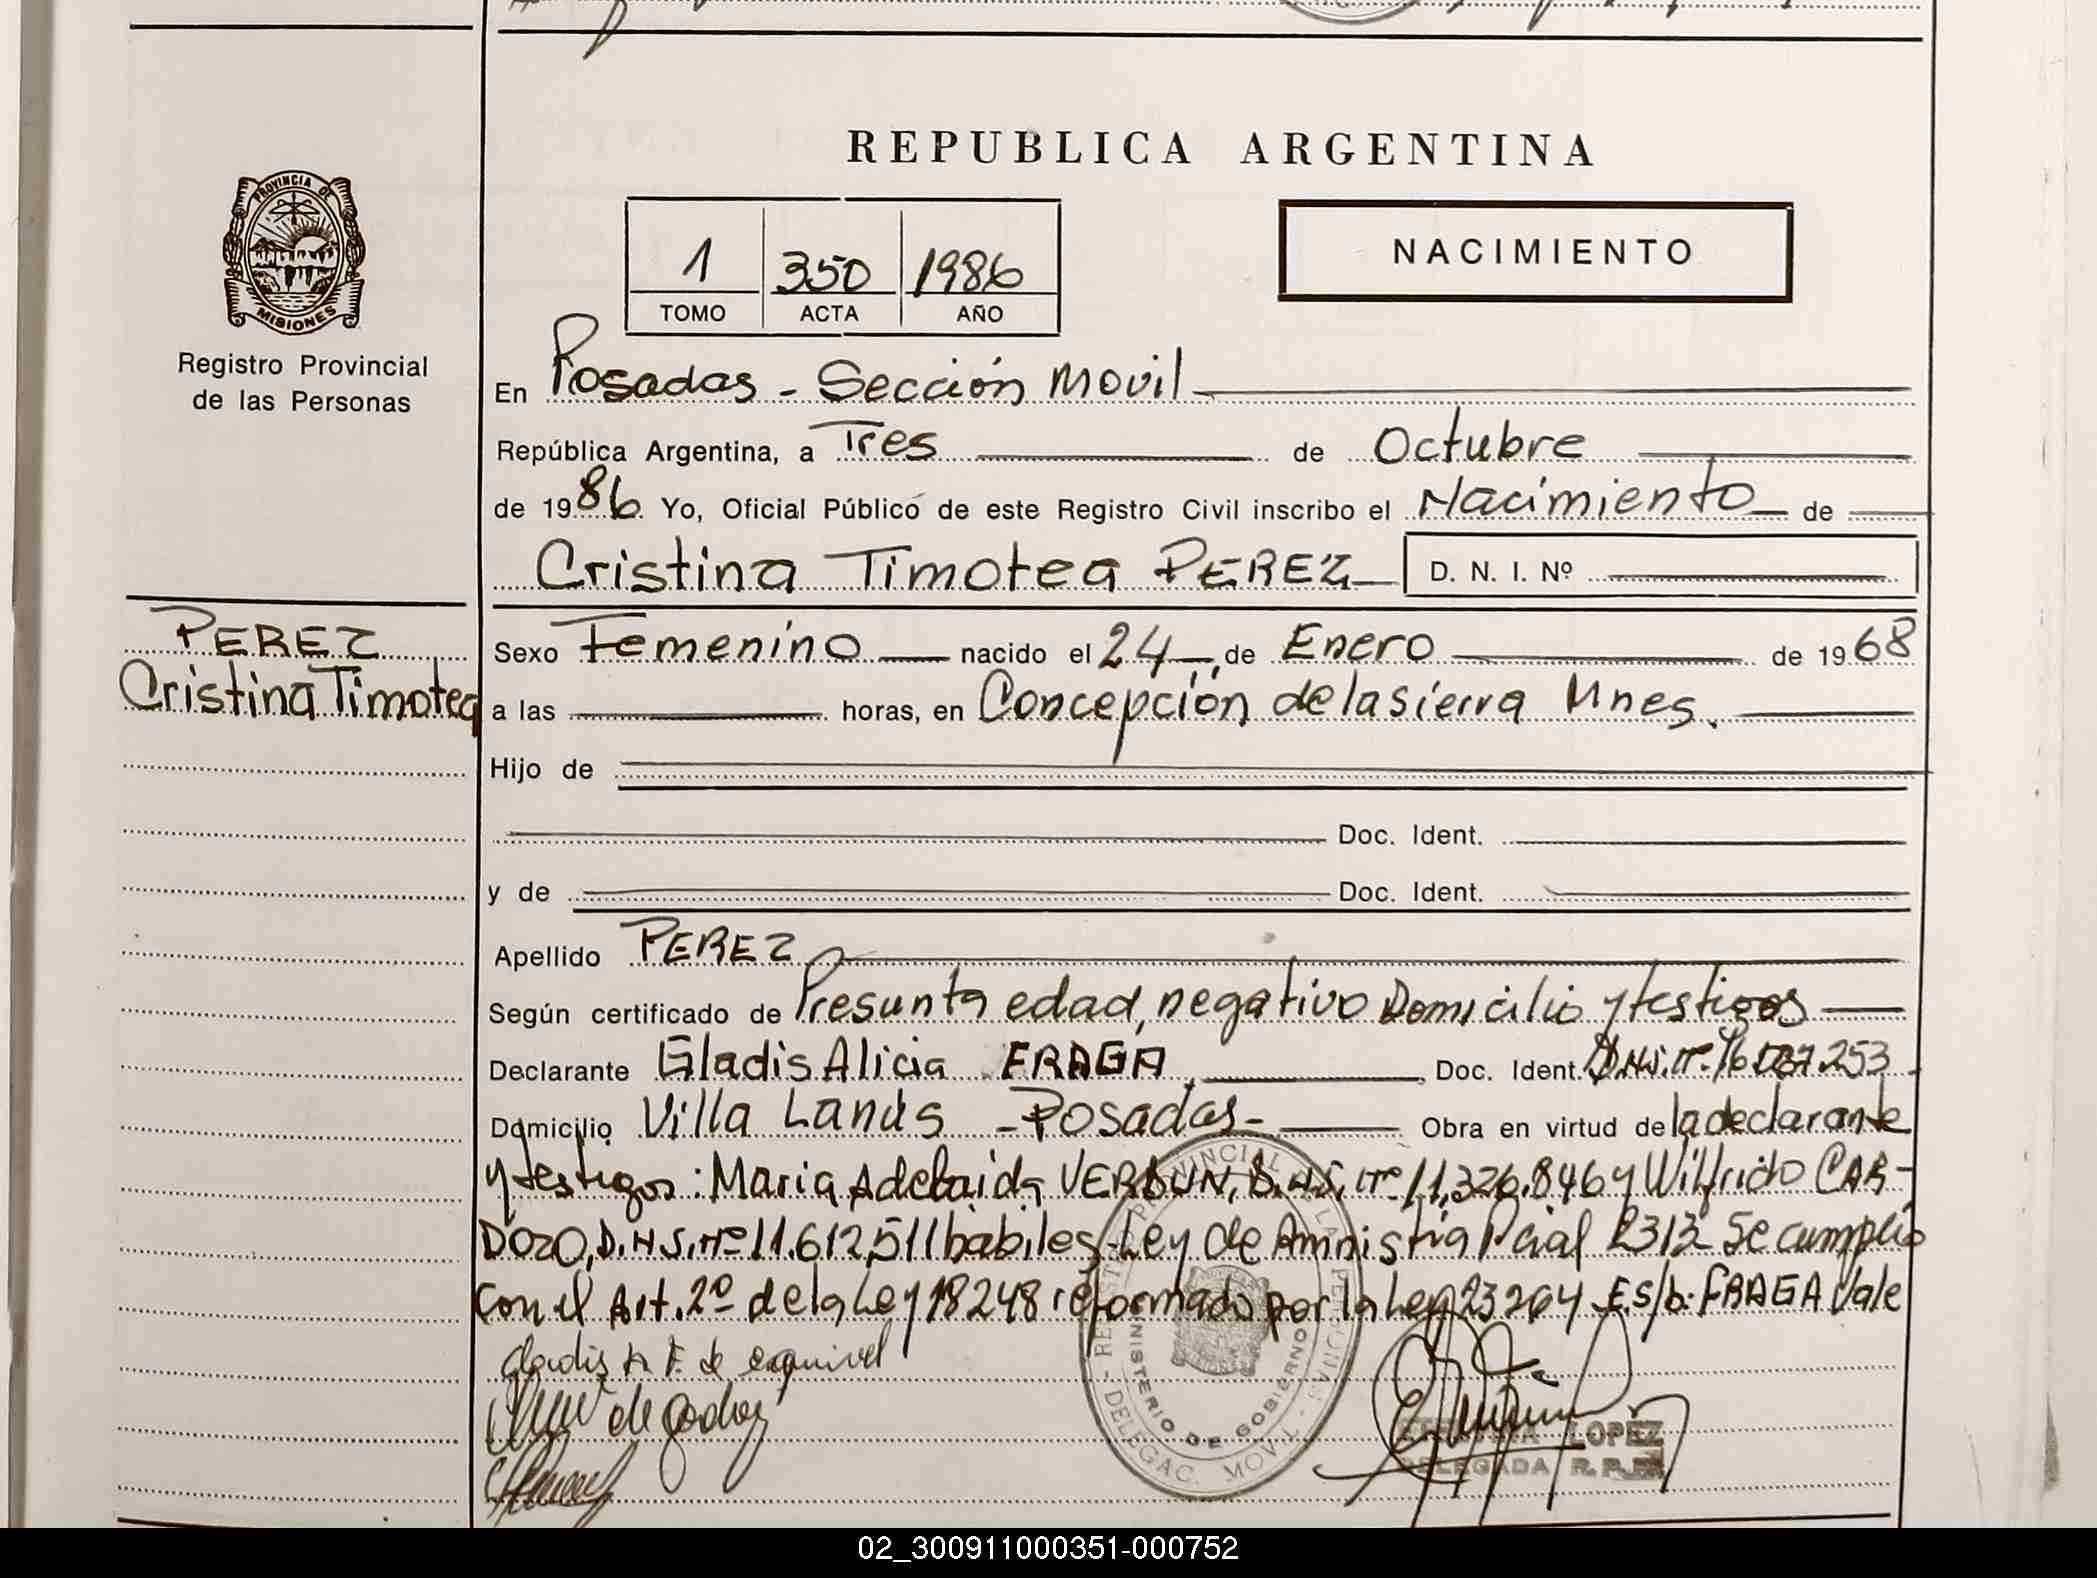 REPUBLICA ARGENTINA
PROVINCIA DE
MISIONES
Registro Provincial
de las Personas
1 350 1986
TOMO ACTA AÑO
NACIMIENTO
En Posadas - Sección Movil
República Argentina, a Tres de Octubre
de 1986 Yo, Oficial Público de este Registro Civil inscribo el Nacimiento de
Cristina Timotea PEREZ D. N. I. Nº
PEREZ
Cristina Timotea
Sexo Femenino nacido el 24 de Enero de 1968
a las horas, en Concepción de la Sierra Mnes.
Hijo de
Doc. Ident.
y de Doc. Ident.
Apellido PEREZ
Según certificado de Presunta edad, negativo Domicilio y testigos
Declarante Gladis Alicia FRAGA, Doc. Ident. D.N.I. Nº
Domicilio Villa Lanús - Posadas - Obra en virtud de la declarante
y testigos: Maria Adelaida VERDUN, D.N.I. Nº 11,326.846 y Wilfrido CAR-
DOZO, D.N.I. Nº 11.612,511 habiles - Ley de Amnistía Pcial 2313 Se cumplió
con el Art. 2º de la Ley 18248 reformado por la Ley 23264 E.S/b: FRAGA Vale
Gladis A F. de esquivel
de godoy
REGISTRO PROVINCIAL DE LAS PERSONAS
MINISTERIO DE GOBIERNO
DELEGAC. MOVIL
LOPEZ
DELEGADA R. P. P.
02_300911000351-000752